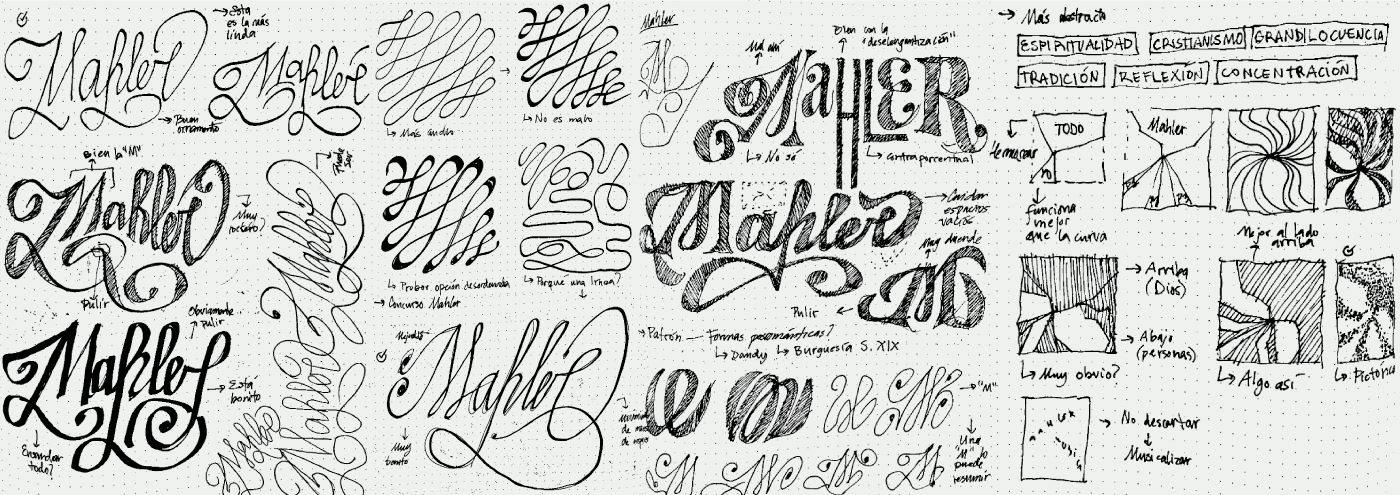 Esta
es la más
linda
Mahler
Mahler
Buen
ornamento
Bien la "M"
Mahler
Muy
rockero?
Pulir
Obviamente...
Pulir
Mahler
Está
bonito
Encuadrar
todo?
Mahler
Mahler
Mahler
Más ancho
No es malo
Probar opción desordenada
Porque una línea?
Concurso Mahler
Mejor
Mahler
Muy
bonito
Mahler
Bien con la
"deselegantización"
MaHLER.
No sé
Contraporcentual
Mahler
Cuidar
espacios
vacíos
Muy duende
M
Pulir
Patrón — Formas posrománticas?
Dandy
Burguesía S. XIX
"M"
Una
"M" lo
puede
resumir
Más abstracto
ESPIRITUALIDAD
CRISTIANISMO
GRANDILOCUENCIA
TRADICIÓN
REFLEXIÓN
CONCENTRACIÓN
TODO
YO
Mahler
Funciona
mejor
que la curva
Mejor al lado
arriba
Arriba
(Dios)
Abajo
(personas)
Muy obvio?
Algo así
Pictórico
MAHLER
MUSIC
No descartar
Musicalizar